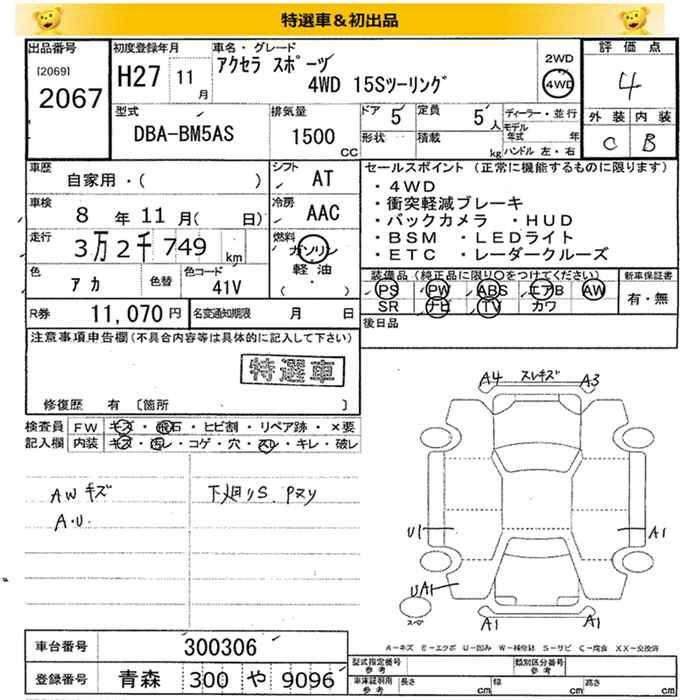 特選車＆初出品
出品番号
[2069]
2067
初度登録年月
H27 11月
車名・グレード
アクセラ スポーツ
4WD 15Sツーリング
2WD
4WD
評価点
4
外装 内装
C B
型式
DBA-BM5AS
排気量
1500
CC
ドア 5
定員 5人
形状
積載 kg
ディーラー・並行
モデル年式 年
ハンドル 左・右
車歴
自家用・( )
シフト
AT
車検
8年11月( 日)
冷房
AAC
走行
3万2千749 km
燃料
ガソリン
軽油
( ・ )
色
アカ
色替
色コード
41V
R券 11,070円
名変通知期限 月 日
セールスポイント (正常に機能するものに限ります)
・4WD
・衝突軽減ブレーキ
・バックカメラ ・HUD
・BSM ・LEDライト
・ETC ・レーダークルーズ
装備品(純正品に限り○をつけてください)
新車保証書
PS PW ABS エアB AW
有・無
SR ナビ TV カワ
後日品
注意事項申告欄(不具合内容等は具体的に記入して下さい)
特選車
修復歴 有 〔箇所 〕
検査員記入欄
FW キズ・飛石・ヒビ割・リペア跡・×要
内装 キズ・汚レ・コゲ・穴・スレ・キレ・破レ
AWキズ
A.U.
下廻りS. Pヌリ
A4 スレキズ A3
U1 A1
UA1
スペ
A1 A1
A-キズ E-エクボ U-凹み W-補修跡 S-サビ C-腐食 XX-交換済
車台番号 300306
登録番号 青森 300 や 9096
型式指定番号
参考
類別区分番号
参考
車庫証明用
参考
長さ cm
幅 cm
高さ cm